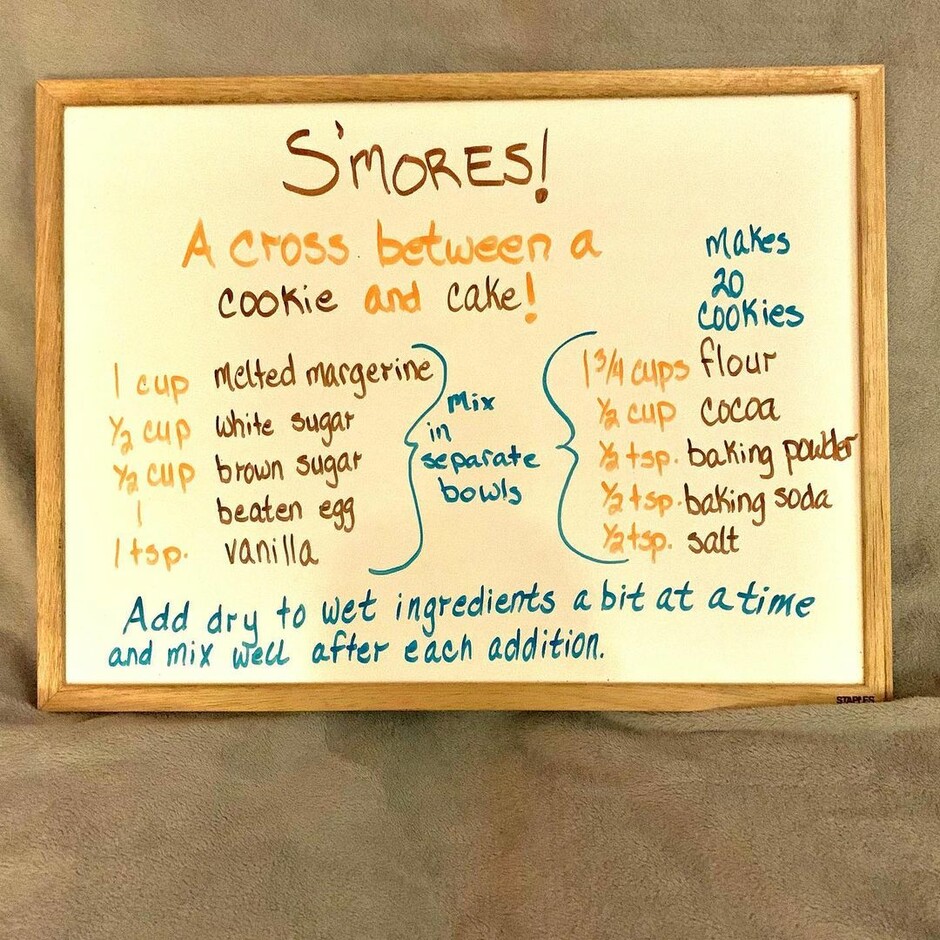 S'MORES!
A cross between a
cookie and cake!
makes
20
cookies
1 cup melted margerine
½ cup white sugar
½ cup brown sugar
1 beaten egg
1 tsp. vanilla
Mix
in
separate
bowls
1 3/4 cups flour
½ cup cocoa
½ tsp. baking powder
½ tsp. baking soda
½ tsp. salt
Add dry to wet ingredients a bit at a time
and mix well after each addition.
STAPLES